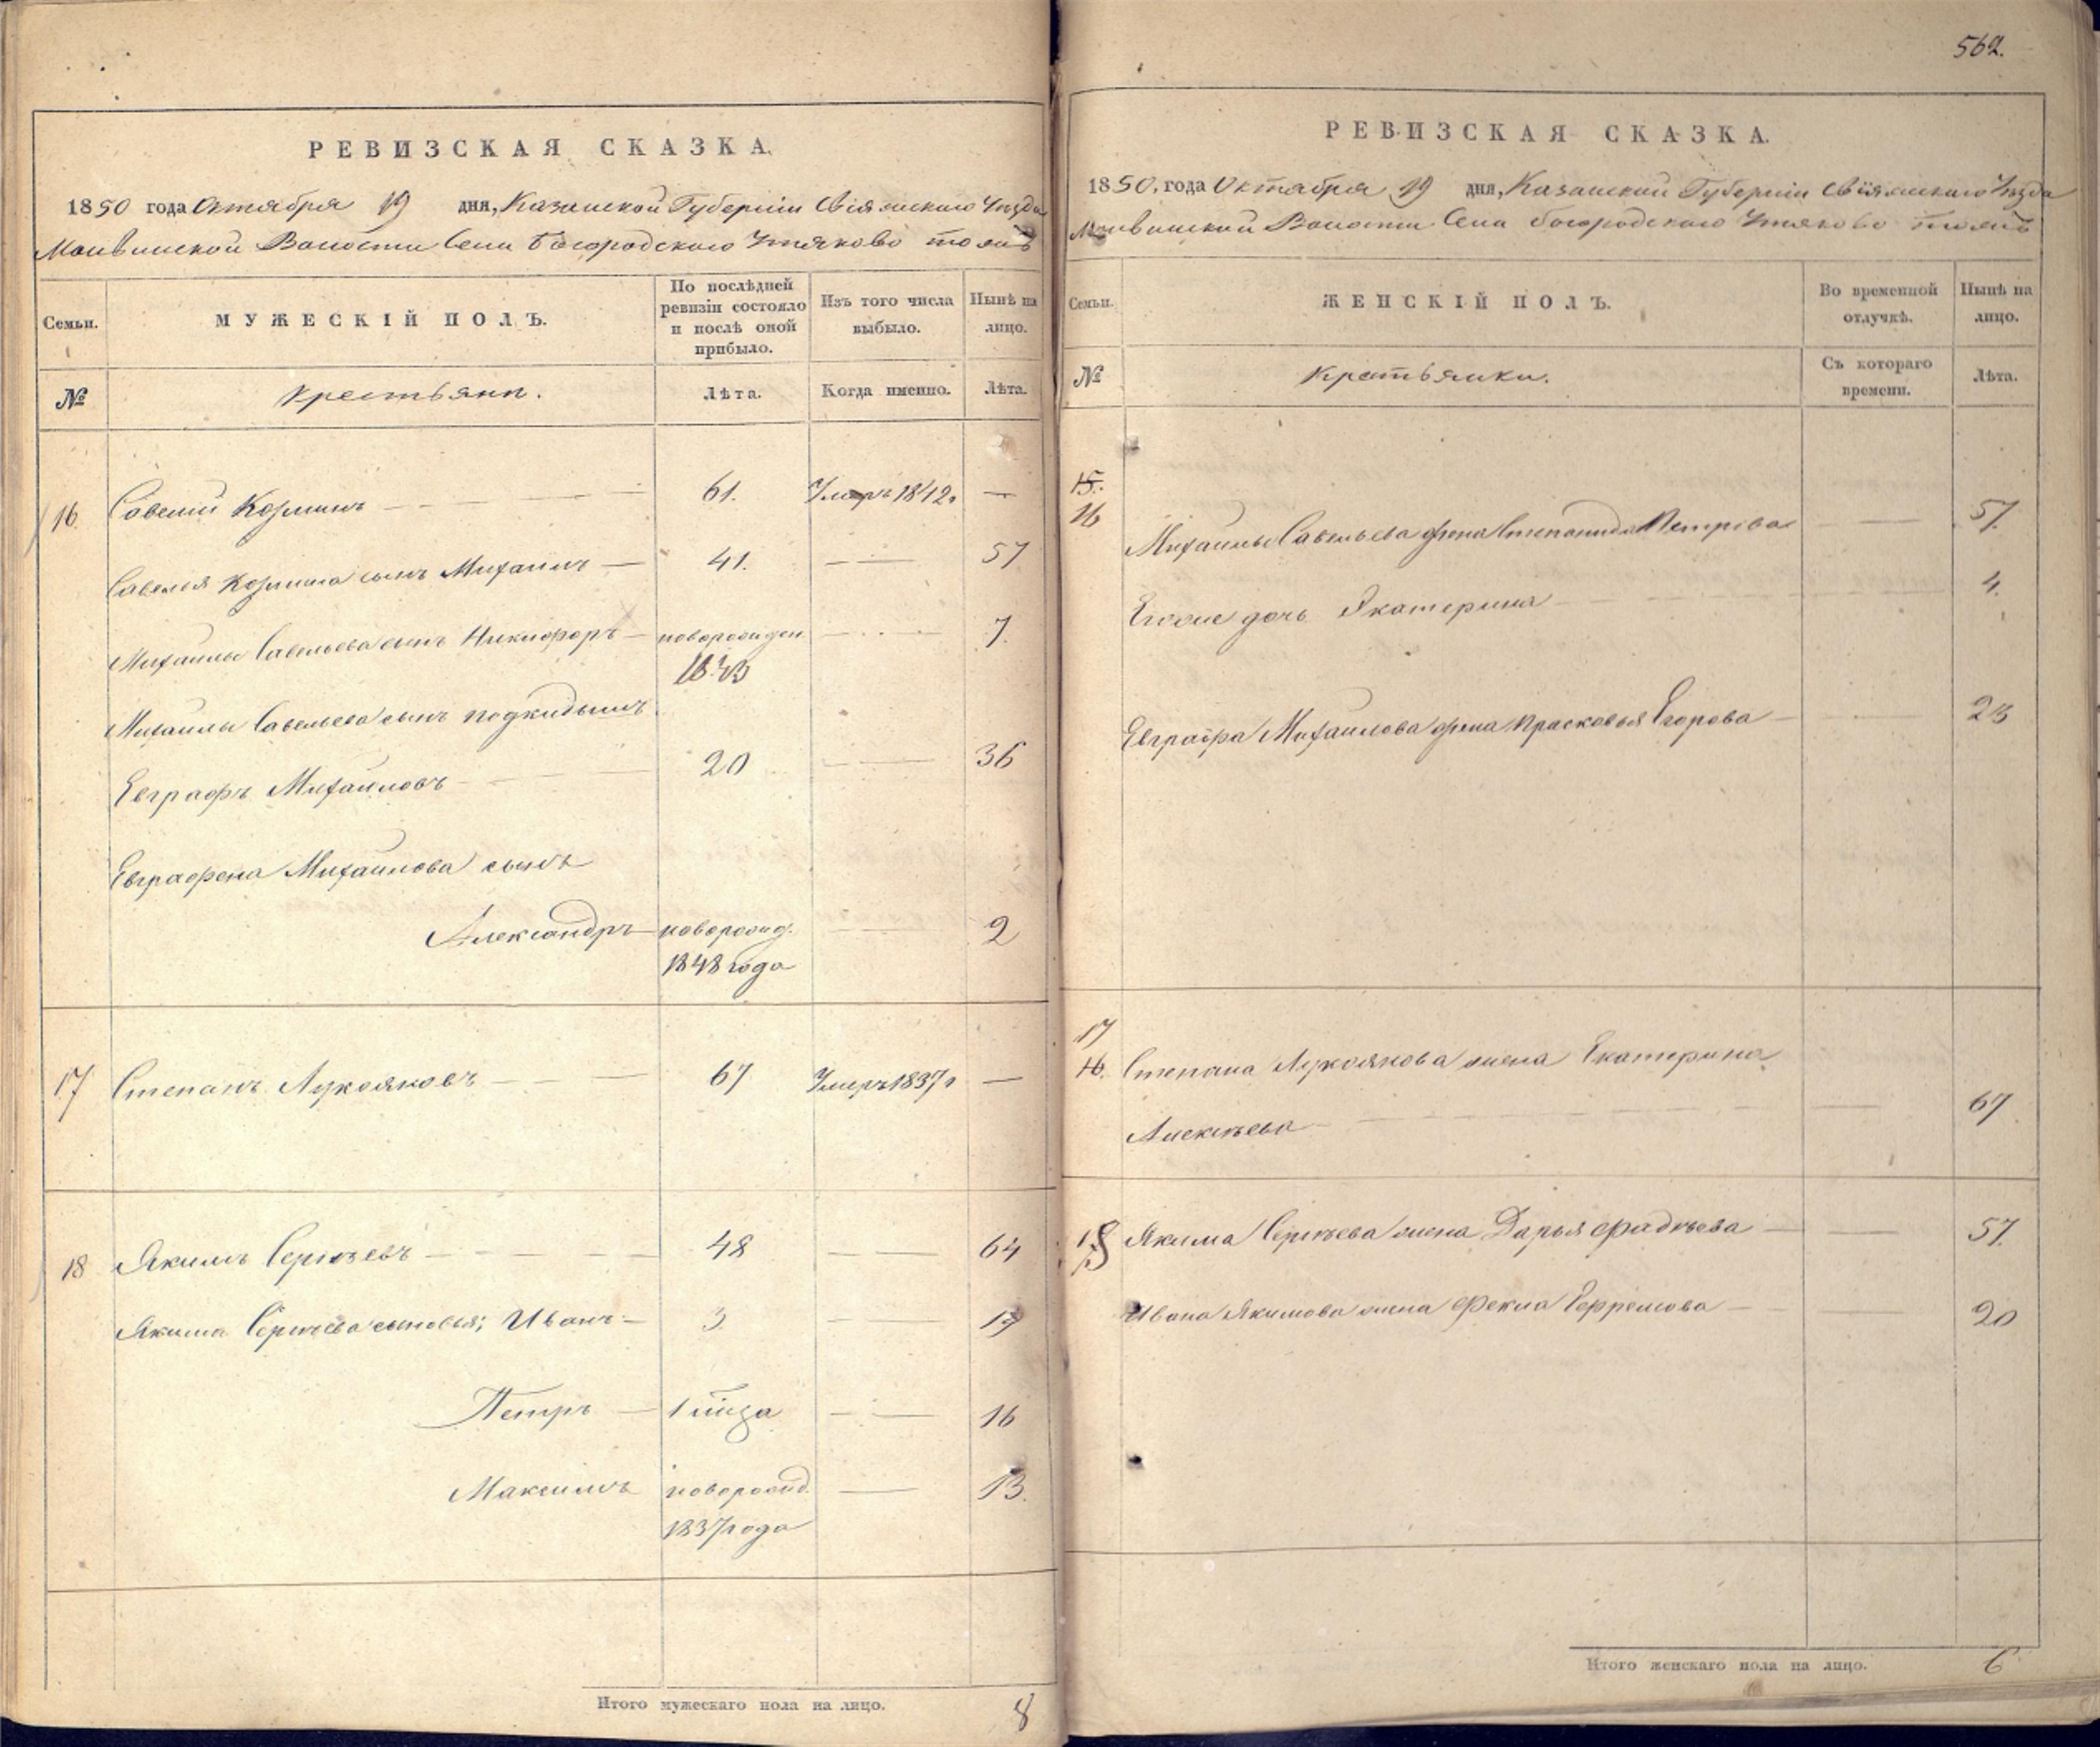 РЕВИЗСКАЯ СКАЗКА.
1850 года Октября 19 дня, Казанской Губерніи Свіяжскаго Уѣзда
Волости Села Богородскаго Утяково тожъ
Семьи.
МУЖЕСКІЙ ПОЛЪ.
По послѣдней ревизіи состояло и послѣ оной прибыло.
Изъ того числа выбыло.
Нынѣ на лицо.
№
Крестьяни.
Лѣта.
Когда именно.
Лѣта.
16 Савелий Козминъ — 61. Умеръ 1842 г —
Савелья Козмина сынъ Михаилъ — 41. — 57
Михаилы Савельева сынъ Никифоръ — новорожден — 7.
1843
Михаилы Савельева сынъ подкидышъ
Евграфъ Михаиловъ — 20 — 36
Евграфена Михаилова сынъ
Александръ — новорожд. — 2
1848 года
17 Степанъ Лукояновъ — 67 Умеръ 1837 г —
18 Якимъ Сергѣевъ — 48 — 64
Якима Сергѣева сыновья; Иванъ — 3 — 19
Петръ — 1 года — 16
Максимъ новорожд. — 13.
1837 года
Итого мужескаго пола на лицо. 8
562.
РЕВИЗСКАЯ СКАЗКА.
1850, года Октября 19 дня, Казанской Губерніи Свіяжскаго Уѣзда
Волости Села Богородскаго Утяково тожъ
Семьи.
ЖЕНСКІЙ ПОЛЪ.
Во временной отлучкѣ.
Нынѣ на лицо.
№
Крестьянки.
Съ котораго времени.
Лѣта.
15.
16 Михаилы Савельева жена Степанида Петрова — 57.
Егоже дочь Екатерина — 4.
Евграфа Михаилова жена Прасковья Егорова — 23
17
16. Степана Лукоянова жена Екатерина
Алексѣева — 67
18 Якима Сергѣева жена Дарья Фадѣева — 57.
Ивана Якимова жена Фекла Ефремова — 20
Итого женскаго пола на лицо. 6